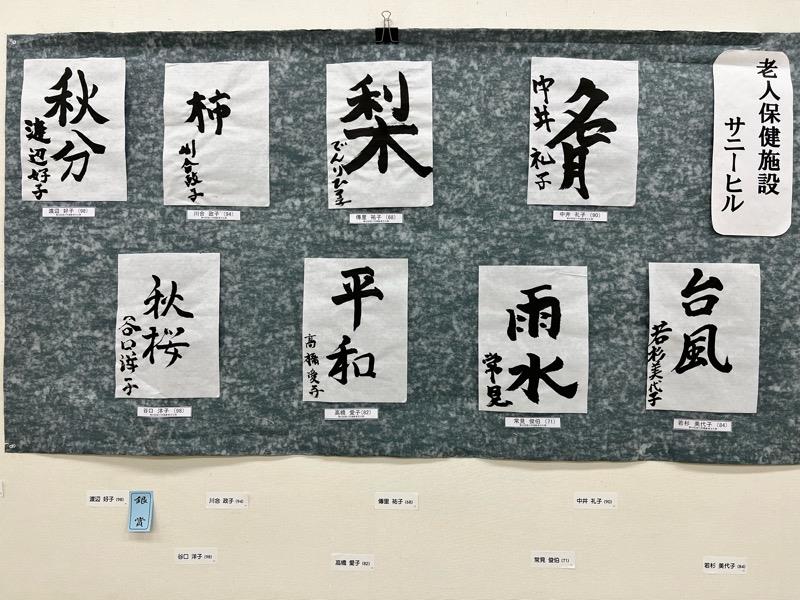 老人保健施設
サニーヒル
名月
中井 礼子
中井 礼子 (90)
梨
でんりひろ子
傳里 祐子 (68)
柿
川合政子
川合 政子 (94)
秋分
渡辺好子
渡辺 好子 (98)
台風
若杉美代子
若杉 美代子 (84)
雨水
常見
常見 俊伯 (71)
平和
高橋愛子
高橋 愛子 (82)
秋桜
谷口洋子
谷口 洋子 (98)
渡辺 好子 (98)
銀賞
川合 政子 (94)
傳里 祐子 (68)
中井 礼子 (90)
谷口 洋子 (98)
高橋 愛子 (82)
常見 俊伯 (71)
若杉 美代子 (84)